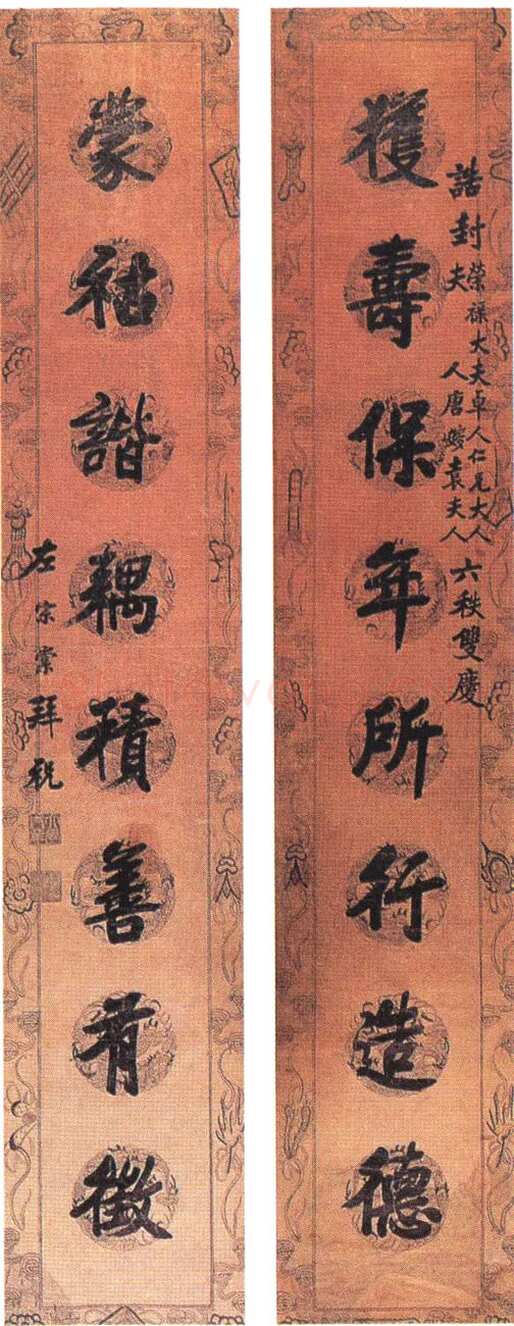 誥封榮祿大夫卓人仁兄大人
夫人唐嫂袁夫人六秩雙慶
獲壽保年所行造德
蒙祜諧耦積善有徵
左宗棠拜祝